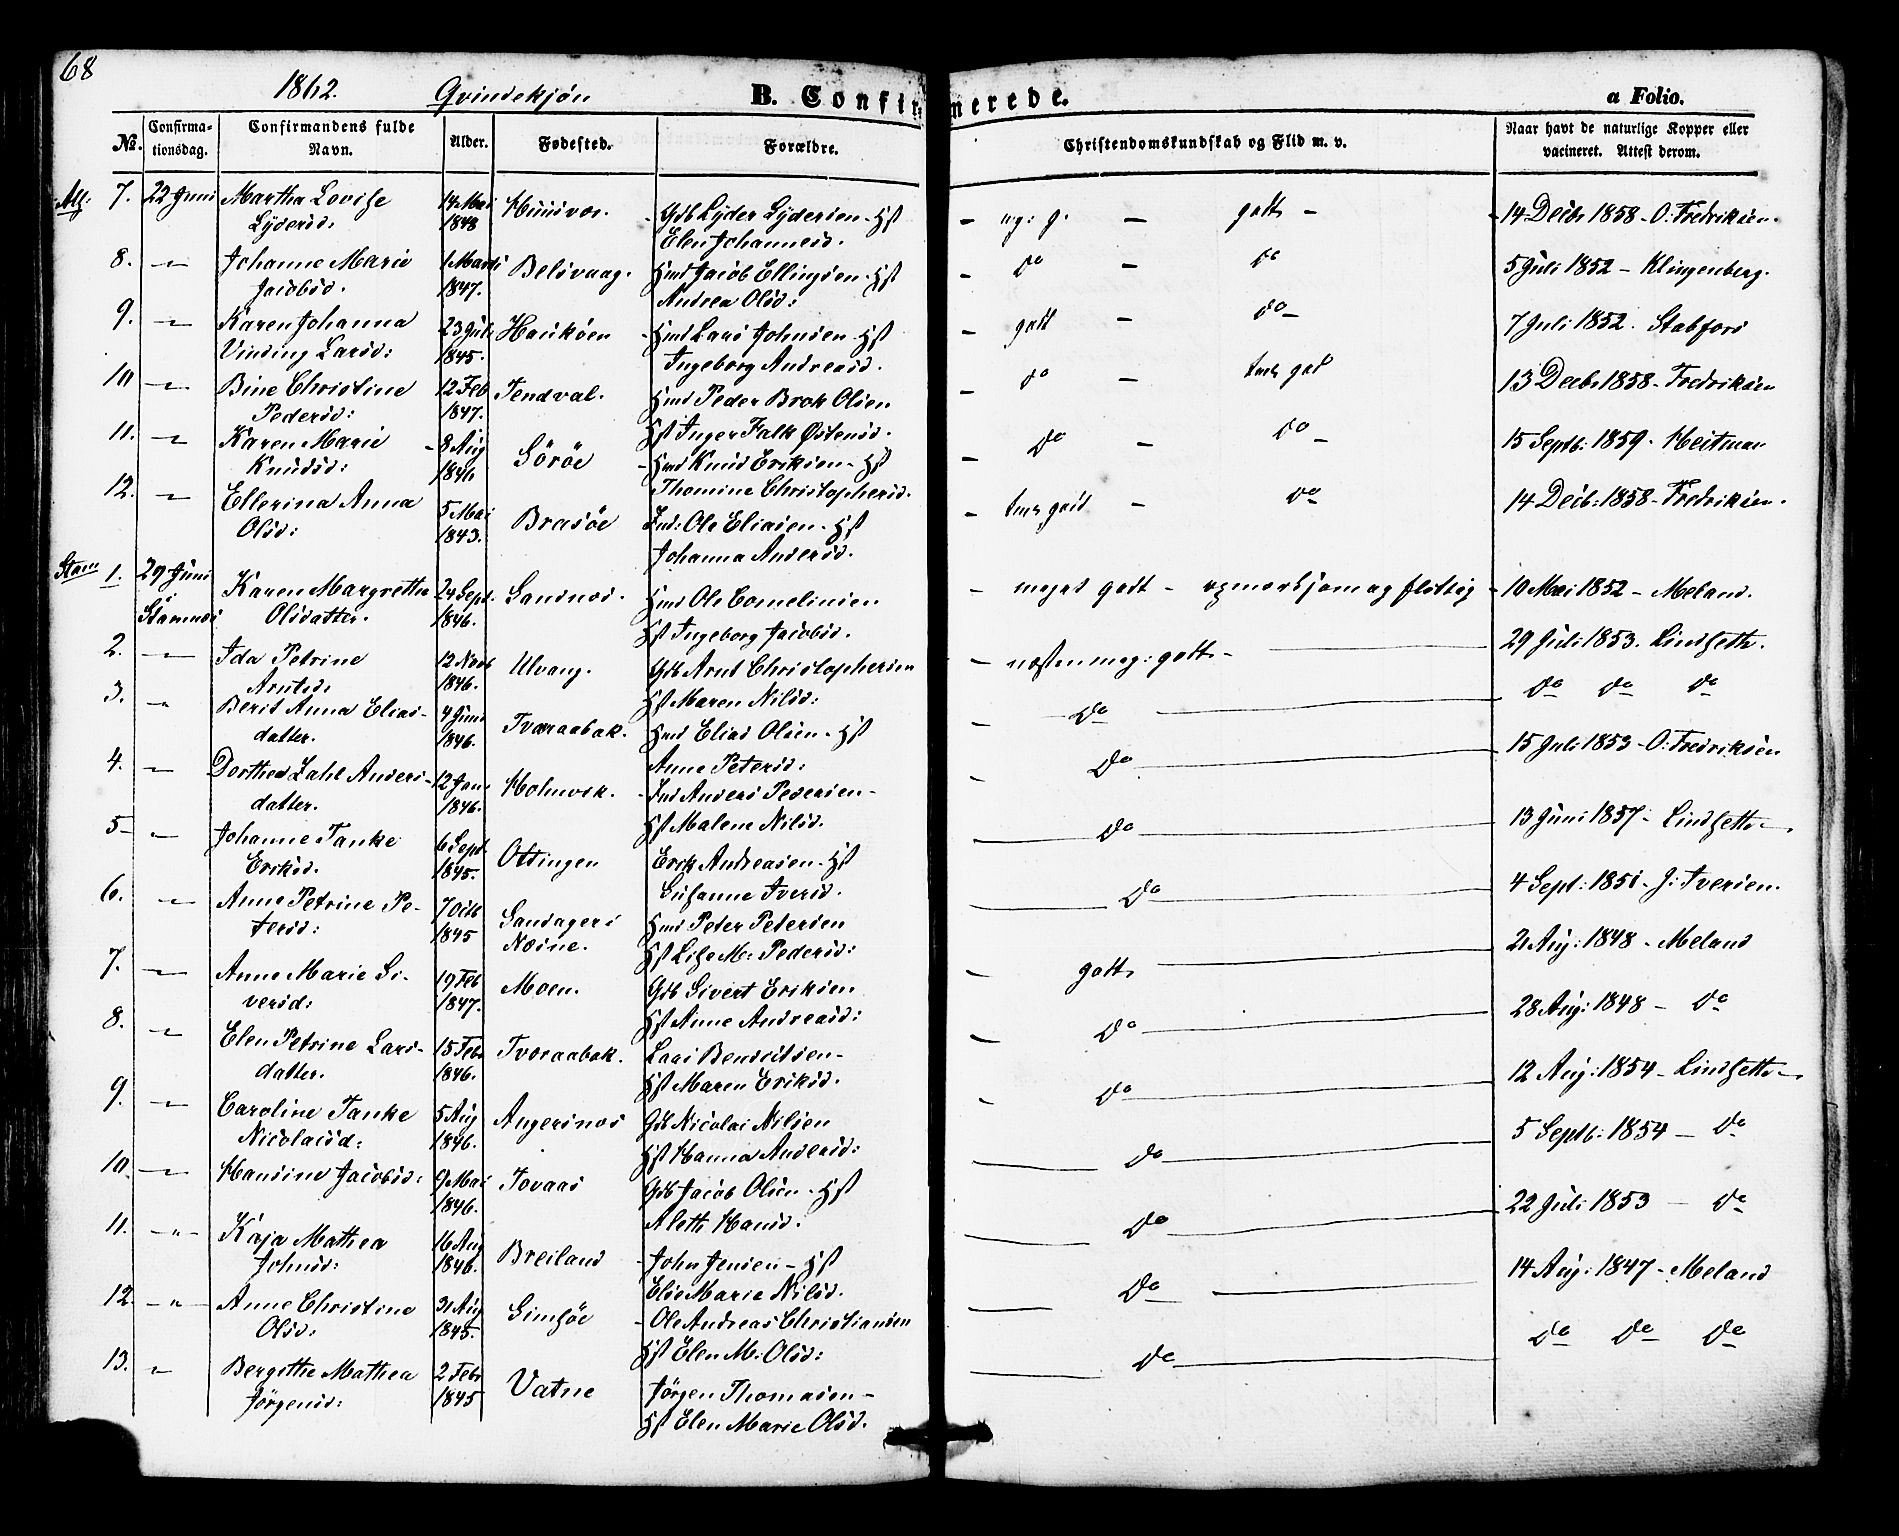 68
1862. Qvindekjøn B. Confirmerede. a Folio.
No. Confirma- Confirmandens fulde Alder. Fødested. Forældre. Christendomskundskab og Flid m. v. Naar havt de naturlige Kopper eller
tionsdag. Navn. vacineret. Attest derom.
7. 22 Juni Martha Lovise 14 Mai Gdb Lyder Lydersen - Hst - mg: g. - godt - 14 Decbr 1858 - O: Fredriksen.
Lydersd: 1848 Elen Johannesd.
8. - " - Johanne Marie 1 Marts Belsvaag. Hmd Jacob Ellingsen - Hst - do - do 5 Juli 1852 - Klingenberg.
Jacobsd. 1847. Andrea Olsd:
9. - " - Karen Johanna 23 Juli Hmd Lars Johnsen - Hst - godt - do - 7 Juli 1852. Stabfors
Vinding Larsd: 1845. Ingeborg Andreasd.
10 - " - Bine Christine 12 Feb Tendval. Hmd Peder Brok Olsen - do - tmlr god 13 Decbr 1858 - Fredriksen
Pedersd: 1847. Hst Inger Falk Østensd.
11. - " - Karen Marie 8 Aug Sörøe - Hmd Knud Eriksen - Hst - do - do - 15 Septb: 1859. Heitman
Knudsd: 1846 Thomine Christophersd.
12. - " - Ellerina Anna 5 Mai Brasøe Ind: Ole Eliasen - Hst - tmlr god - do 14 Decb: 1858 - Fredriksen.
Olsd: 1843. Johanna Andersd.
Stam 1. 29 Juni Karen Margrethe 24 Sept. Sandnes. Hmd Ole Cornelius­sen - meget godt - opmærksom og flittig - 10 Mai 1852 - Meland.
Stamnes Olsdatter. 1846. Hst Ingeborg Jacobsd.
2. - " - Ida Petrine 12 Novb Ulvang. Gdb Arnt Christophersen - næsten meg: godt - 29 Juli 1853. Lindseth.
Arntsd: 1846. Hst Maren Nilsd:
3. " Berit Anna Elias- 4 Juni Tværaabak. Hmd Elias Olsen - Hst - do do do do
datter. 1846. Anne Petersd:
4. - " - Dorthea Dahl Anders- 12 Holmvik. - Ind Anders Pedersen - - do 15 Juli 1853 - O: Fredriksen
datter. 1846. Hst Malene Nilsd.
5 - " - Johanne Tanke 6 Sept. Ottingen Erik Andreasen - Hst do 13 Juni 1857 - Lindseth -
Eriksd. 1845. Susanne Iversd.
6. - " - Anne Petrine Pe- 7 Octb Sandagers Hmd Peter Petersen do 4 Sept: 1851 - J: Iversen.
tersd: 1845 Næsne. Hst Lise M: Pedersd:
7. - " - Anne Marie Si- 19 Feb Moen. Gdb Sivert Eriksen - godt 21 Aug: 1848 - Meland
versd: 1847. Hst Anne Andreasd:
8. - " - Elen Petrine Lars- 15 Feb. Tvoraabak. Lars Bendictsen - - do 28 Aug: 1848 - do
datter. 1846. Hst Maren Eriksd.
9. - " - Caroline Tanke 5 Aug Angersnes Gdb Nicolai Nilsen - do 12 Aug: 1854 - Lindseth -
Nicolaisd: 1846. Hst Hanna Andersd:
10. - " - Hansine Jacobsd: 9 Mai Tovaas Gdb Jacob Olsen - Hst do 5 Septb: 1854 - do
1846. Aleth Hansd.
11. - " - Kaja Mathea 16 Aug Breiland - John Jensen - Hst do 22 Juli 1853 - do
Johnsd: 1846. Else Marie Nilsd.
12. - " - Anne Christine 31 Aug Gimsøe - Ole Andreas Christiansen do 14 Aug: 1847 - Meland
Olsd: 1845. Hst Elen M: Olsd:
13. " Bergithe Mathea 2 Feb. Vatne Jørgen Thomasen - do do do do
Jørgensd: 1845 Hst Elen Marie Olsd.